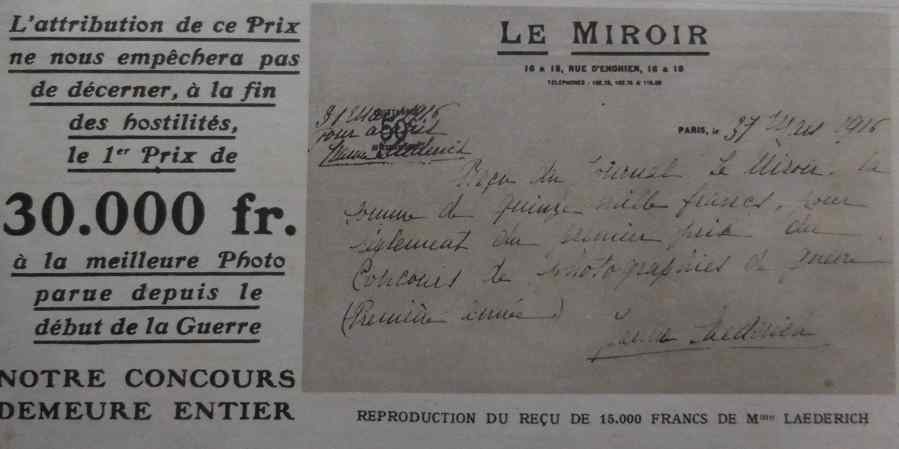 L'attribution de ce Prix
ne nous empêchera pas
de décerner, à la fin
des hostilités,
le 1er Prix de
30.000 fr.
à la meilleure Photo
parue depuis le
début de la Guerre
NOTRE CONCOURS
DEMEURE ENTIER
LE MIROIR
16 & 18, RUE D'ENGHIEN, 16 & 18
PARIS, le 31 Mars 1916
31 Mars 1916
pour acquis
Jeanne Laederich
50
Reçu du Journal Le Miroir, la
somme de quinze mille francs, pour
règlement du premier prix du
Concours de photographies de guerre
(Première année)
Jeanne Laederich
REPRODUCTION DU REÇU DE 15.000 FRANCS DE Mme LAEDERICH